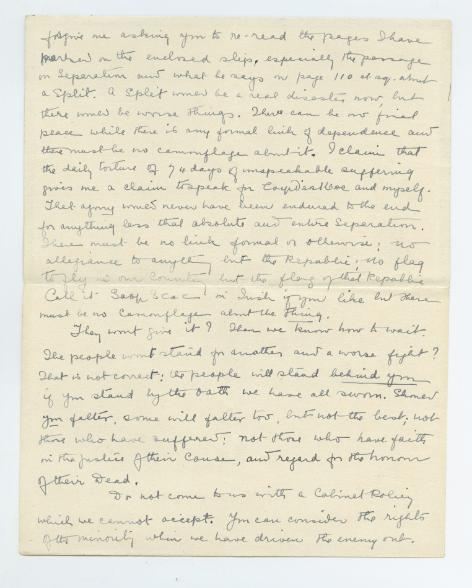 forgive me asking you to re-read the pages I have
marked on the enclosed slip, especially the passage
on Seperation and what he says on page 110 et sq. about
a Split. A Split would be a real disaster now, but
there would be worse things. There can be no final
peace while there is any formal link of dependence and
there must be no camouflage about it. I claim that
the daily torture of 74 days of unspeakable suffering
gives me a claim to speak for and myself.
That agony would never have been endured to the end
for anything less that absolute and entire Seperation.
There must be no link formal or otherwise; no
allegiance to anyth but the Republic; no flag
to fly in our Country but the flag of that Republic
Call it in Irish if you like but there
must be no camouflage about the thing.
They wont give it? Then we know how to wait.
The people wont stand for another and a worse fight?
That is not correct; the people will stand behind you
if you stand by the oath we have all sworn. Should
you falter, some will falter too, but not the best; not
those who have suffered; not those who have faith
in the justice of their Cause, and regard for the honour
of their Dead.
Do not come to us with a Cabinet Policy
which we cannot accept. You can consider the rights
of the minority when we have driven the enemy out.